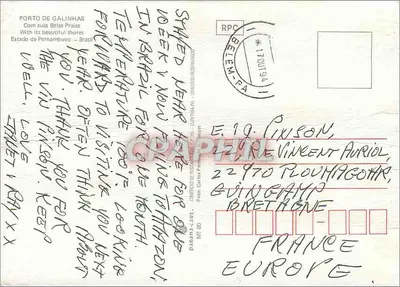 PORTO DE GALINHAS
Com suas Belas Praias
With its beautiful shores
Estado de Pernambuco - Brasil
STAYED NEAR HERE FOR ONE
WEEK & NOW ENJOYING
IN BRAZIL FOR ONE MONTH.
TEMPERATURE 90°F. LOOKING
FORWARD TO VISITING YOU NEXT
YEAR. OFTEN THINK ABOUT
YOU. THANK YOU FOR
THE VIN PINSON. KEEP
WELL. LOVE
JANET & RAY. X X
Nº 80
RPC
BELEM-PA
17 OUT 94
E. J. PINSON,
22 RUE VINCENT AURIOL,
22970 PLOUMAGOAR,
GUINGAMP
BRETAGNE
FRANCE
EUROPE
CPARAMA